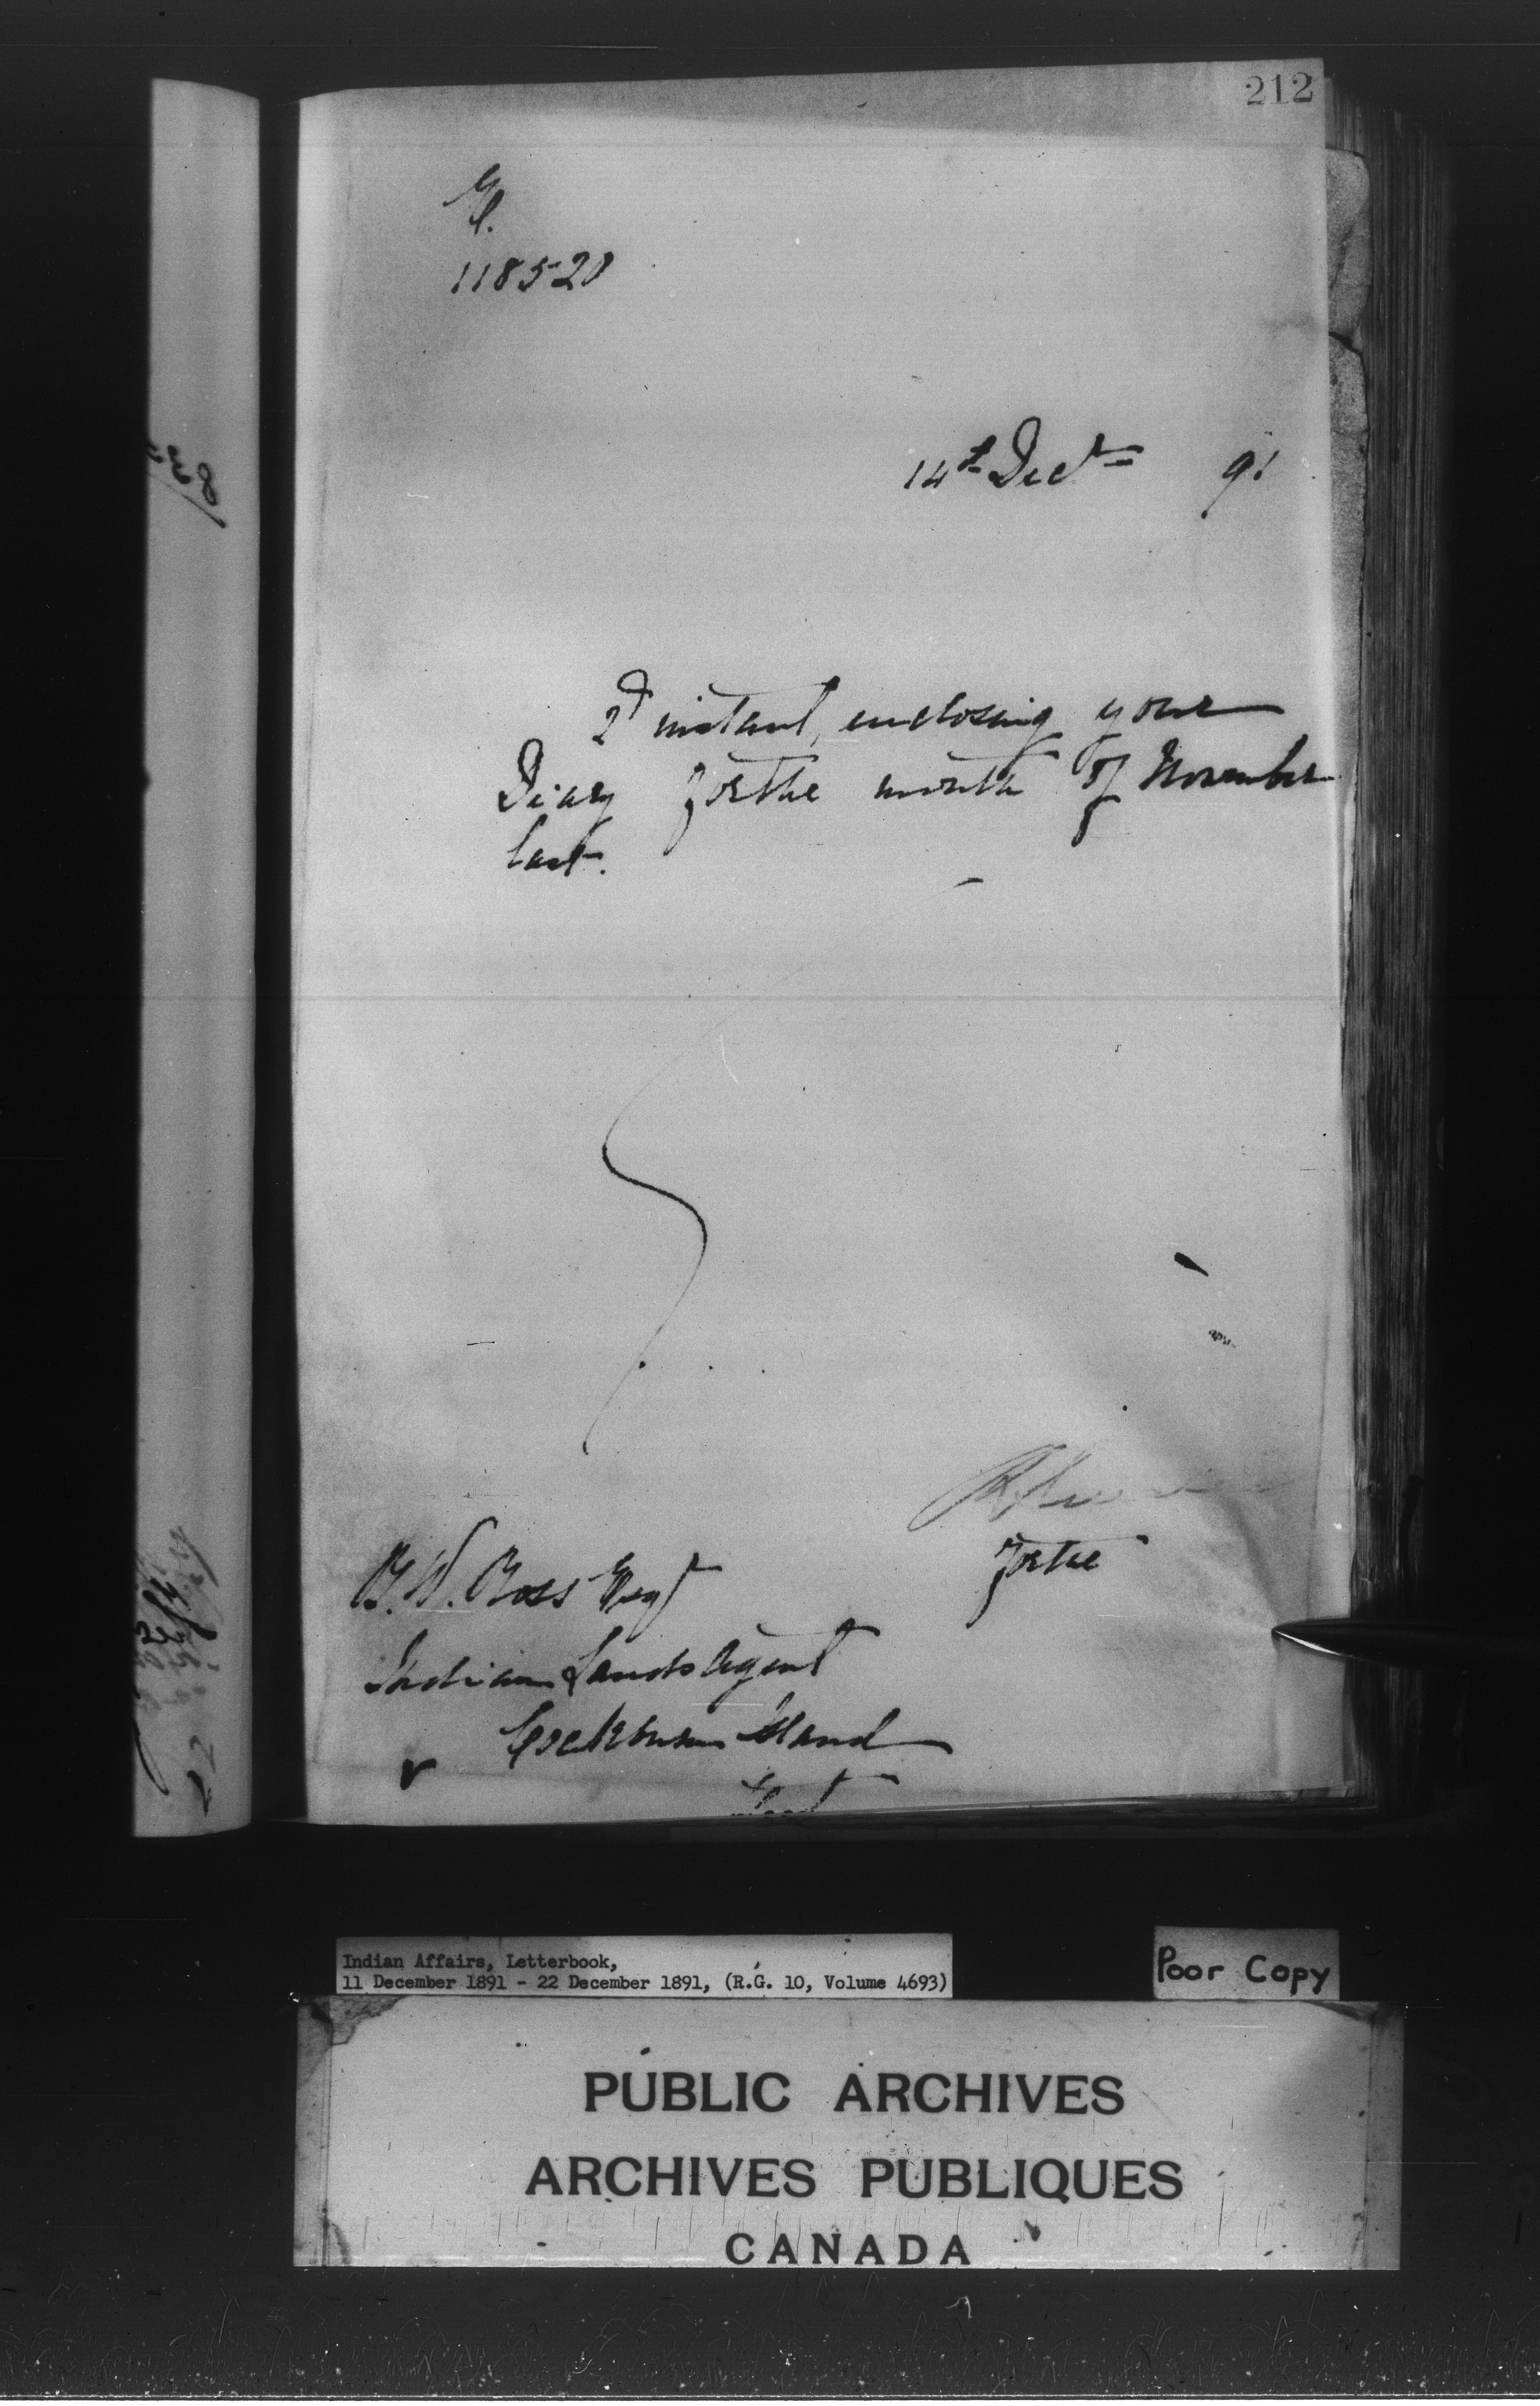 212
E.
118520
14th Decr 91
2d instant, enclosing your
Diary for the month of November
last.
for the
B. W. Ross Esqr
Indian Lands Agent
Cockburn Island
Indian Affairs, Letterbook,
11 December 1891 - 22 December 1891, (R.G. 10, Volume 4693)
Poor Copy
PUBLIC ARCHIVES
ARCHIVES PUBLIQUES
CANADA